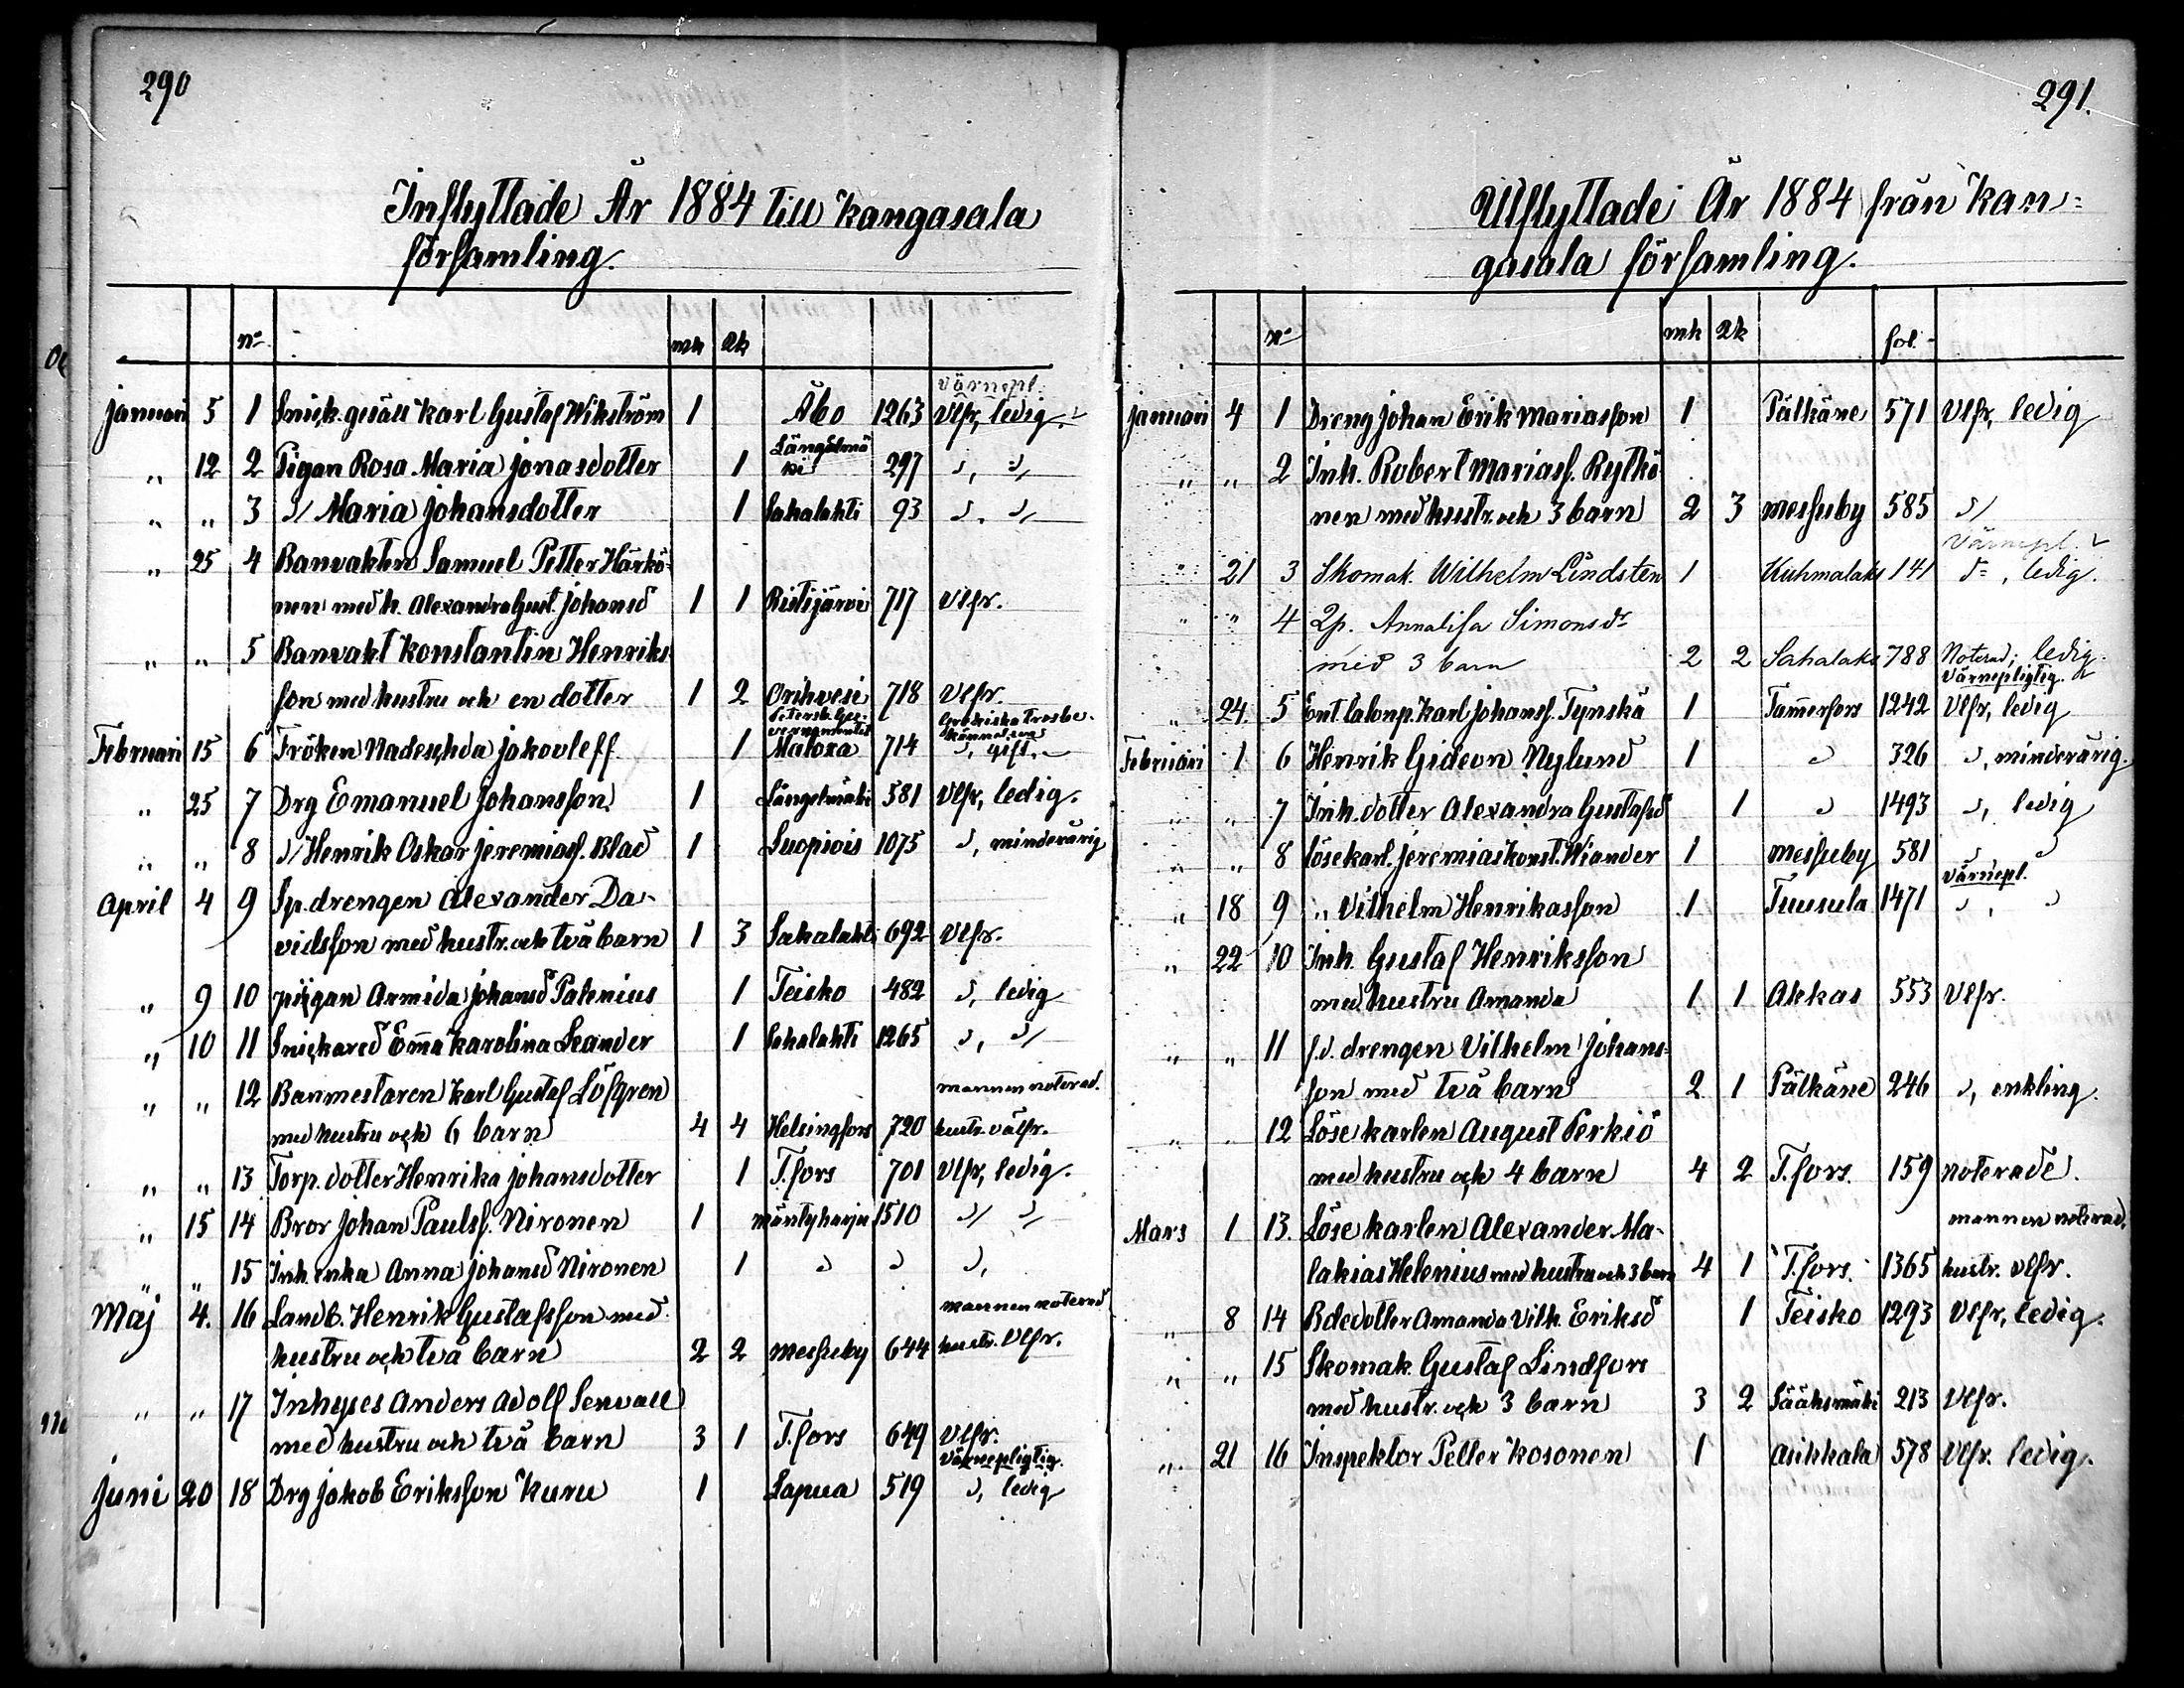 290
Inflyttade År 1884 till Kangasala
församling.
No mk qk
Värnepl.
Januari 5 1 Snick. gesäll Karl Gustaf Wikström 1 Åbo 1263 Vlfr, ledig.
Längelmä
„ 12 2 Pigan Rosa Maria Jonasdotter 1 ki 297 d, d/
„ „ 3 d/ Maria Johansdotter 1 Sahalahti 93 d. d/
„ 25 4 Banvakten Samuel Petter Härkö-
nen med h. Alexandra Gust. Johansd 1 1 Ristijärvi 717 Vlfr.
„ „ 5 Banvakt Konstantin Henriks
son med hustru och en dotter 1 2 Orihvesi 718 Vlfr.
Petersb. Gou- Grekiska trosbe-
vernementet kännelsen
Februari 15 6 Fröken Nadeschda Jakovleff 1 Maloxa 714 d, gift.
„ 25 7 Drg Emanuel Johansson. 1 Längelmäki 581 Vlfr, ledig.
„ „ 8 d/ Henrik Oskar Jeremiass. Blad 1 Luopiois 1075 d, minderårig
April 4 9 Sp. drengen Alexander Da-
vidsson med hustr. och två barn 1 3 Sahalahti 692 Vlfr.
„ 9 10 pigan Armida Johansd Palenius 1 Teisko 482 d, ledig
„ 10 11 Snickared Emma Karolina Leander 1 Sahalahti 1265 d, d/
„ „ 12 Banmestaren Karl Gustaf Löfgren mannen noterad.
med hustru och 6 barn 4 4 Helsingfors 720 hustr. välfr.
„ „ 13 Torp. dotter Henrika Johansdotter 1 T.fors 701 Vlfr, ledig.
„ 15 14 Bror Johan Paulss. Nironen 1 Mäntyharju 1510 d/ d/
„ „ 15 Inh. enka Anna Johansd Nironen 1 d d d,
Maj 4. 16 Landb. Henrik Gustafsson med mannen noterad
hustru och två barn 2 2 Messuby 644 hustr. Vlfr.
„ „ 17 Inhyses Anders Adolf Senvall
med hustru och två barn 3 1 T.fors 649 Vlfr.
Värnepligtig.
Juni 20 18 Drg Jakob Eriksson Kuru 1 Lapua 519 d, ledig
291.
Utflyttade År 1884 från Kan-
gasala församling.
No mk qk fol.
Januari 4 1 Dreng Johan Erik Mariasson 1 Pälkäne 571 Vlfr, ledig
„ „ 2 Inh. Robert Mariass. Rytkö
nen med hustr. och 3 barn 2 3 Messuby 585 d/
Värnepl.
„ 21 3 Skomak. Wilhelm Lindsten 1 Kuhmalaks 141 d=, ledig.
„ „ 4 Qp. Annalisa Simonsdr
med 3 barn 2 2 Sahalaks 788 Noterad; ledig.
Värnepligtig.
„ 24 5 Ent. lalonp. Karl Johanss. Tynskä 1 Tammerfors 1242 Vlfr, ledig
Februari 1 6 Henrik Gideon Nylund 1 d 326 d, minderårig.
„ „ 7 Inh. dotter Alexandra Gustafsd 1 d 1493 d, ledig
„ „ 8 löse karl. Jeremias Konst. Wiander 1 Messuby 581 d d
Värnepl.
„ 18 9 „ Vilhelm Henrikasson 1 Tuusula 1471 d, d
„ 22 10 Inh. Gustaf Henriksson
med hustru Amanda 1 1 Akkas 553 Vlfr.
„ „ 11 f.d. drengen Vilhelm Johans-
son med två barn 2 1 Pälkäne 246 d, enkling.
„ „ 12 Löse karlen August Perkiö
med hustru och 4 barn 4 2 T.fors. 159 noterade.
Mars 1 13. Löse karlen Alexander Ma- mannen noterad,
lakias Helenius med hustru och 3 barn 4 1 T.fors. 1365 hustr. vlfr.
„ 8 14 Bdedotter Amanda Vilh. Eriksd 1 Teisko 1293 Vlfr, ledig.
„ „ 15 Skomak. Gustaf Lindfors
med hustr. och 3 barn 3 2 Sääksmäki 213 Vlfr.
„ 21 16 Inspektor Petter Kosonen 1 Asikkala 578 Vlfr. ledig.